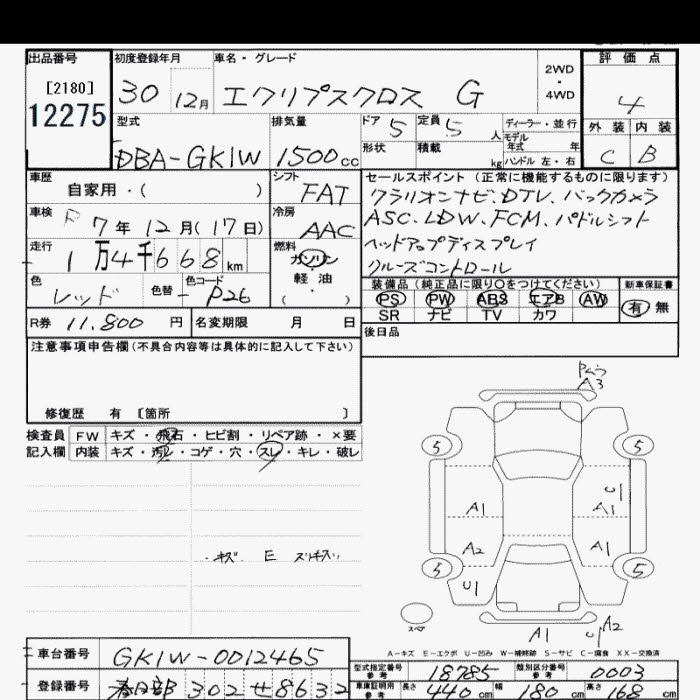 出品番号 初度登録年月 車名・グレード 評価点
[2180] 30 12月 エクリプスクロス G 2WD・4WD 4
12275
型式 排気量 ドア 5 定員 5人 ディーラー・並行 外装 内装
DBA-GK1W 1500cc 形状 積載 kg モデル年式 年 C B
ハンドル 左・右
車歴 シフト セールスポイント (正常に機能するものに限ります)
自家用・( ) FAT クラリオンナビ、DTV、バックカメラ
車検 R 7年 12月(17日) 冷房 AAC ASC、LDW、FCM、パドルシフト
走行 1万4千668km 燃料 ガソリン ヘッドアップディスプレイ
軽油 クルーズコントロール
・( )
色 レッド 色替 - 色コード P26 装備品 (純正品に限り〇をつけてください) 新車保証書
PS PW ABS エアB AW 有 無
SR ナビ TV カワ
R券 11.800円 名変期限 月 日 後日品
注意事項申告欄(不具合内容等は具体的に記入して下さい)
修復歴 有 [箇所 ]
検査員 FW キズ・飛石・ヒビ割・リペア跡・×要
記入欄 内装 キズ・汚レ・コゲ・穴・スレ・キレ・破レ
A3
5 5
A1 A1
A2 A1
5 5
U1
・キズ E
スペア
A1 U1 A2
A-キズ E-エクボ U-凹み W-補修跡 S-サビ C-腐食 XX-交換済
車台番号 GK1W-0012465
型式指定番号 参考 18785 類別区分番号 参考 0003
登録番号 春日部 302 せ 8632
車庫証明用 参考 長さ 440cm 幅 180cm 高さ 168cm